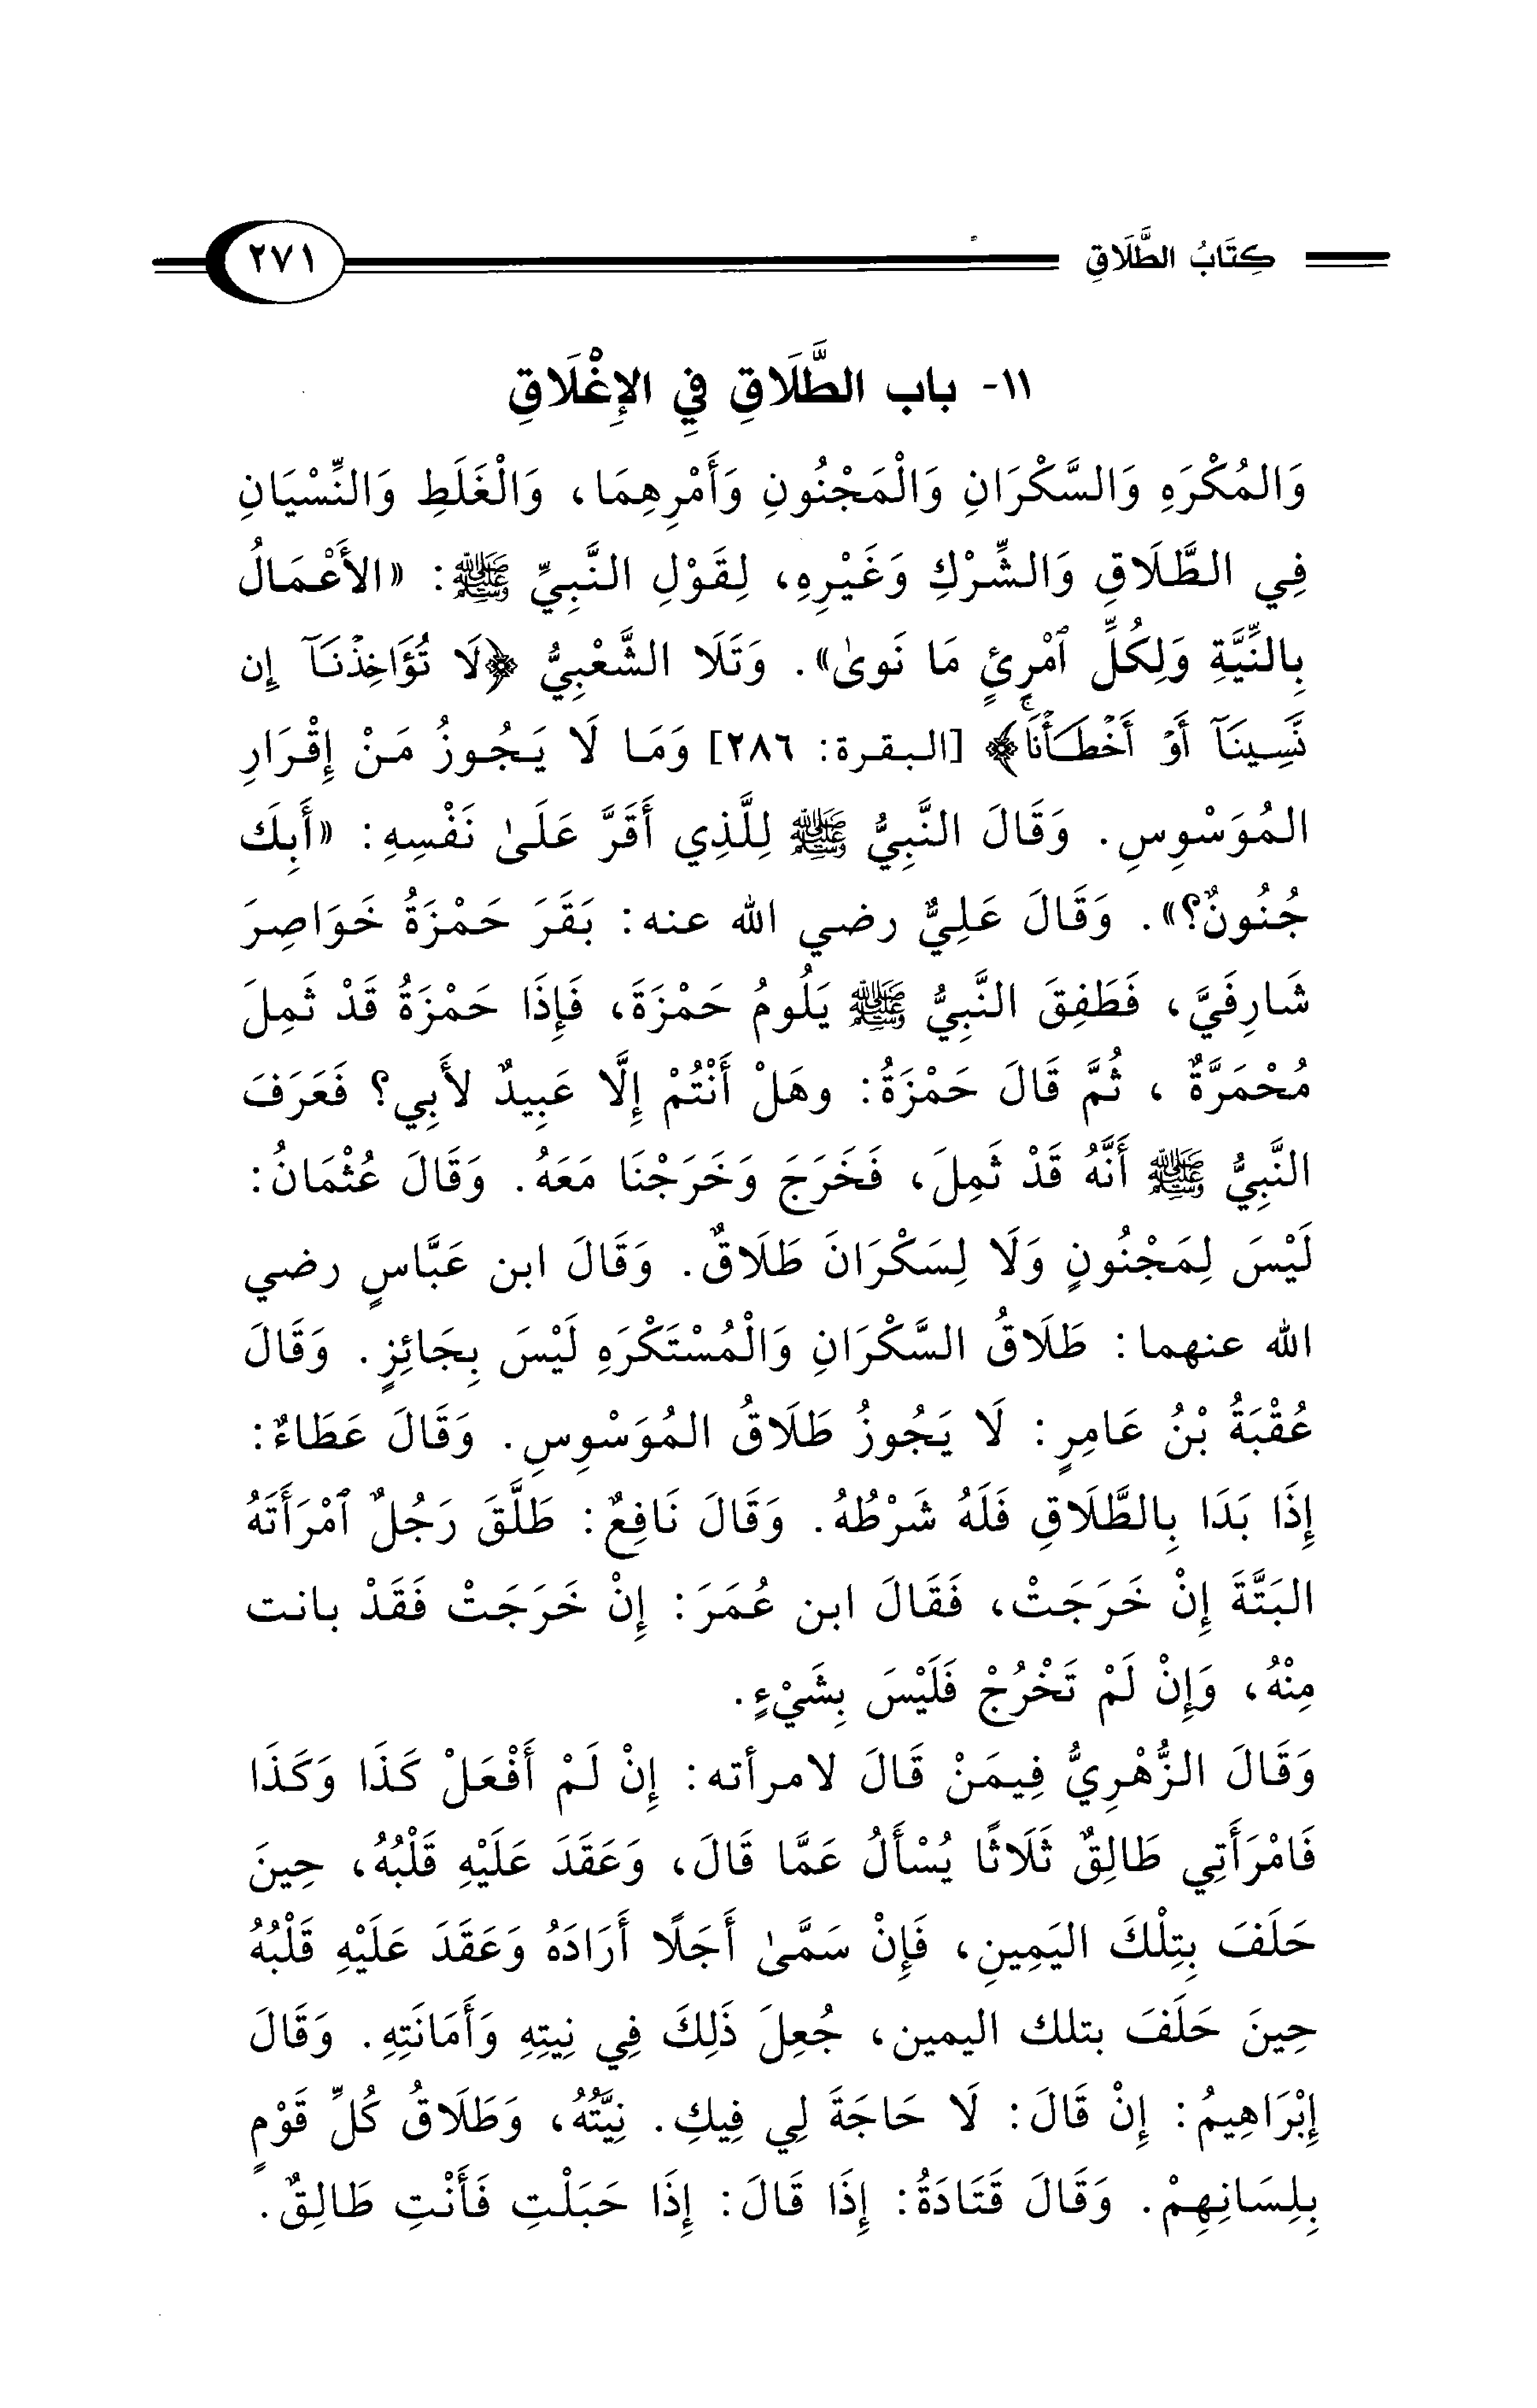 كِتَابُ الطَّلَاقِ ٢٧١
١١- باب الطَّلَاقِ فِي الإِغْلَاقِ
وَالمُكْرَهِ وَالسَّكْرَانِ وَالْمَجْنُونِ وَأَمْرِهِمَا، وَالْغَلَطِ وَالنِّسْيَانِ
فِي الطَّلَاقِ وَالشِّرْكِ وَغَيْرِهِ، لِقَوْلِ النَّبِيِّ ﷺ: «الأَعْمَالُ
بِالنِّيَّةِ وَلِكُلِّ ٱمْرِئٍ مَا نَوىٰ». وَتَلَا الشَّعْبِيُّ ﴿لَا تُؤَاخِذْنَآ إِن
نَّسِينَآ أَوْ أَخْطَأْنَاۚ﴾ [البقرة: ٢٨٦] وَمَا لَا يَجُوزُ مَنْ إِقْرَارِ
المُوَسْوِسِ. وَقَالَ النَّبِيُّ ﷺ لِلَّذِي أَقَرَّ عَلَىٰ نَفْسِهِ: «أَبِكَ
جُنُونٌ؟». وَقَالَ عَلِيٌّ رضي الله عنه: بَقَرَ حَمْزَةُ خَوَاصِرَ
شَارِفَيَّ، فَطَفِقَ النَّبِيُّ ﷺ يَلُومُ حَمْزَةَ، فَإِذَا حَمْزَةُ قَدْ ثَمِلَ
مُحْمَرَّةٌ ، ثُمَّ قَالَ حَمْزَةُ: وهَلْ أَنْتُمْ إِلَّا عَبِيدٌ لأَبِي؟ فَعَرَفَ
النَّبِيُّ ﷺ أَنَّهُ قَدْ ثَمِلَ، فَخَرَجَ وَخَرَجْنَا مَعَهُ. وَقَالَ عُثْمَانُ:
لَيْسَ لِمَجْنُونٍ وَلَا لِسَكْرَانَ طَلَاقٌ. وَقَالَ ابن عَبَّاسٍ رضي
الله عنهما: طَلَاقُ السَّكْرَانِ وَالْمُسْتَكْرَهِ لَيْسَ بِجَائِزٍ. وَقَالَ
عُقْبَةُ بْنُ عَامِرٍ: لَا يَجُوزُ طَلَاقُ المُوَسْوِسِ. وَقَالَ عَطَاءٌ:
إِذَا بَدَا بِالطَّلَاقِ فَلَهُ شَرْطُهُ. وَقَالَ نَافِعٌ: طَلَّقَ رَجُلٌ ٱمْرَأَتَهُ
البَتَّةَ إِنْ خَرَجَتْ، فَقَالَ ابن عُمَرَ: إِنْ خَرَجَتْ فَقَدْ بانت
مِنْهُ، وَإِنْ لَمْ تَخْرُجْ فَلَيْسَ بِشَيْءٍ.
وَقَالَ الزُّهْرِيُّ فِيمَنْ قَالَ لامرأته: إِنْ لَمْ أَفْعَلْ كَذَا وَكَذَا
فَامْرَأَتِي طَالِقٌ ثَلَاثًا يُسْأَلُ عَمَّا قَالَ، وَعَقَدَ عَلَيْهِ قَلْبُهُ، حِينَ
حَلَفَ بِتِلْكَ اليَمِينِ، فَإِنْ سَمَّىٰ أَجَلًا أَرَادَهُ وَعَقَدَ عَلَيْهِ قَلْبُهُ
حِينَ حَلَفَ بتلك اليمين، جُعِلَ ذَلِكَ فِي نِيتِهِ وَأَمَانَتِهِ. وَقَالَ
إِبْرَاهِيمُ: إِنْ قَالَ: لَا حَاجَةَ لِي فِيكِ. نِيَّتُهُ، وَطَلَاقُ كُلِّ قَوْمٍ
بِلِسَانِهِمْ. وَقَالَ قَتَادَةُ: إِذَا قَالَ: إِذَا حَبَلْتِ فَأَنْتِ طَالِقٌ.